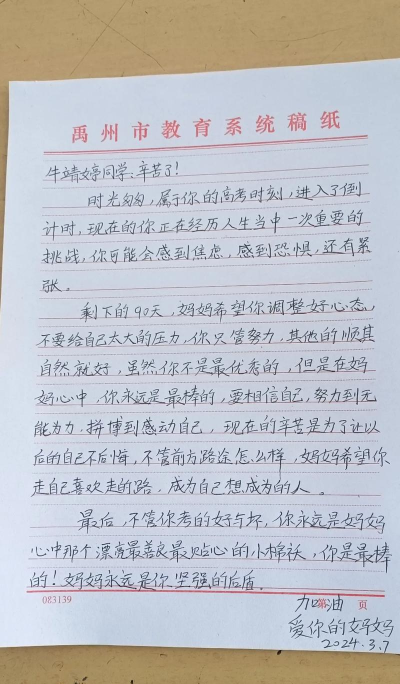 禹州市教育系统稿纸
牛靖婷同学、辛苦了!
时光匆匆,属于你的高考时刻,进入了倒
计时,现在的你正在经历人生当中一次重要的
挑战,你可能会感到焦虑,感到恐惧,还有紧
张。
剩下的90天,妈妈希望你调整好心态,
不要给自己太大的压力,你只管努力,其他的顺其
自然就好,虽然你不是最优秀的,但是在妈
妈心中,你永远是最棒的,要相信自己,努力到无
能为力,拼博到感动自己,现在的辛苦是为了让以
后的自己不后悔,不管前方路途怎么样,妈妈希望你
走自己喜欢走的路,成为自己想成为的人。
最后,不管你考的好与坏,你永远是妈妈
心中那个漂亮最善良最贴心的小棉袄,你是最棒
的!妈妈永远是你坚强的后盾。
083139 第 页
加油
爱你的妈妈
2024.3.7